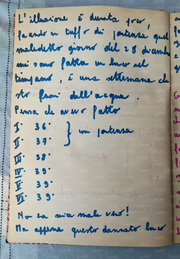 L'illusione è durata poco,
facendo un tuffo di potenza quel
maledetto giorno del 28 dicembre
mi sono fatta un buco nel
timpano, è una settimana che
sto fuori dall'acqua.
Pensa che avevo fatto
I° 36"
II° 39" } in potenza
III° 38"
IV° 39"
V° 39"
VI° 39"
Non era mica male vero!
Ma appena questo dannato buco